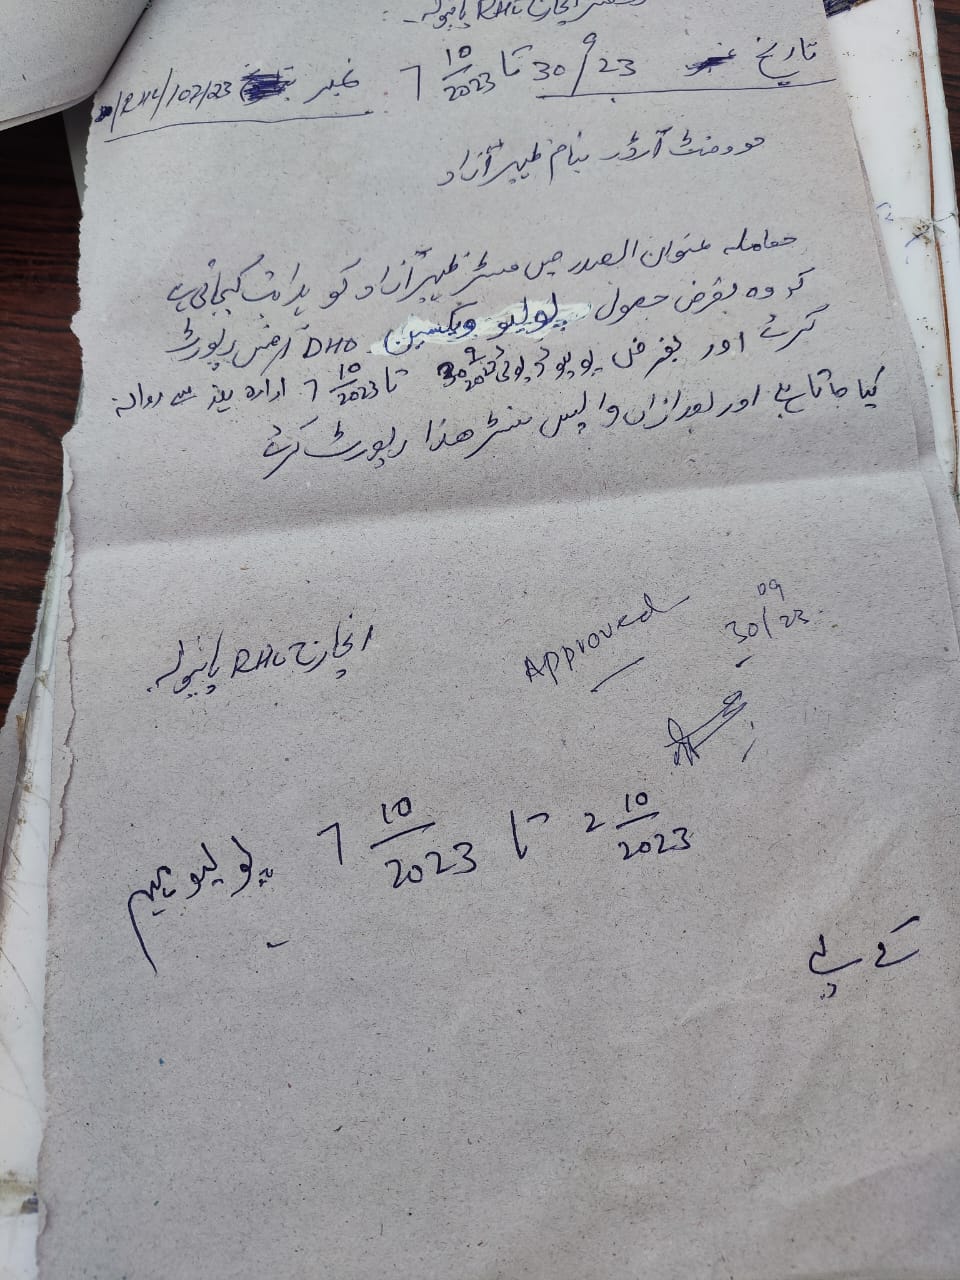 دفتر انچارج RHC پانیولہ۔
تاریخ 30/9/23 تا 7 10/2023 نمبر /RHC/102/23
موومنٹ آرڈر بنام ظہیر آزاد
معاملہ عنوان الصدر میں مسٹر ظہیر آزاد کو ہدایت کیجاتی ہے
کہ وہ بغرض حصول پولیو ویکسین DHO آفس رپورٹ
کرے اور بغرض پولیو ڈیوٹی 30 9/2023 تا 7 10/2023 ادارہ ہذا سے روانہ
کیا جاتا ہے اور بعد ازاں واپس سنٹر ھذا رپورٹ کرے
انچارج RHC پانیولہ۔
Approved
30/09/23
2 10/2023 تا 7 10/2023 پولیو مہم
کے لیے